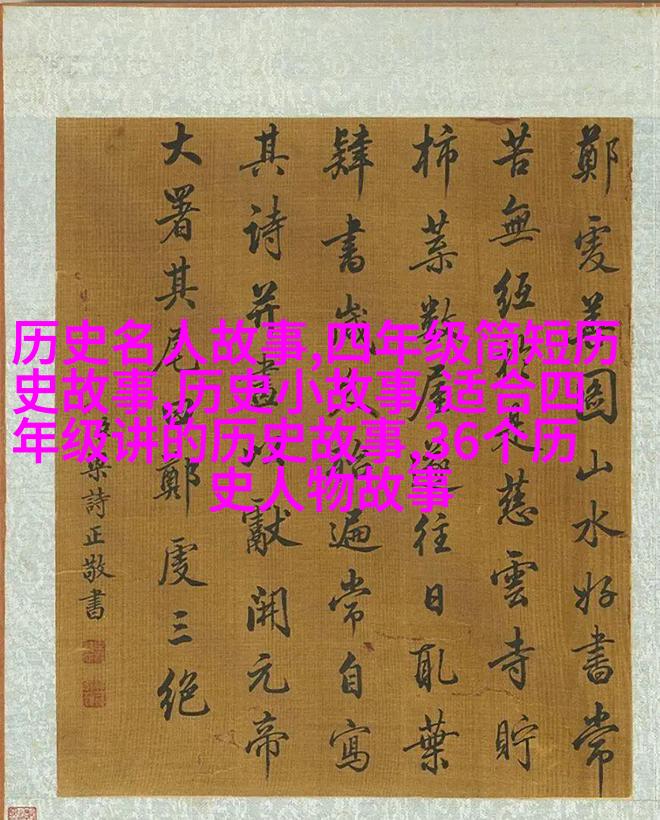 历史名人故事,四年级简短历
史故事,历史小故事,适合四
年级讲的历史故事,36个历
史人物故事
鄭虔善圖山水好書常
苦無紙於是慈雲寺貯
柿葉數屋遂往日取葉
肄書歲久殆遍常自寫
其詩并畫以獻開元帝
大署其尾曰鄭虔三絕
梁詩正敬書